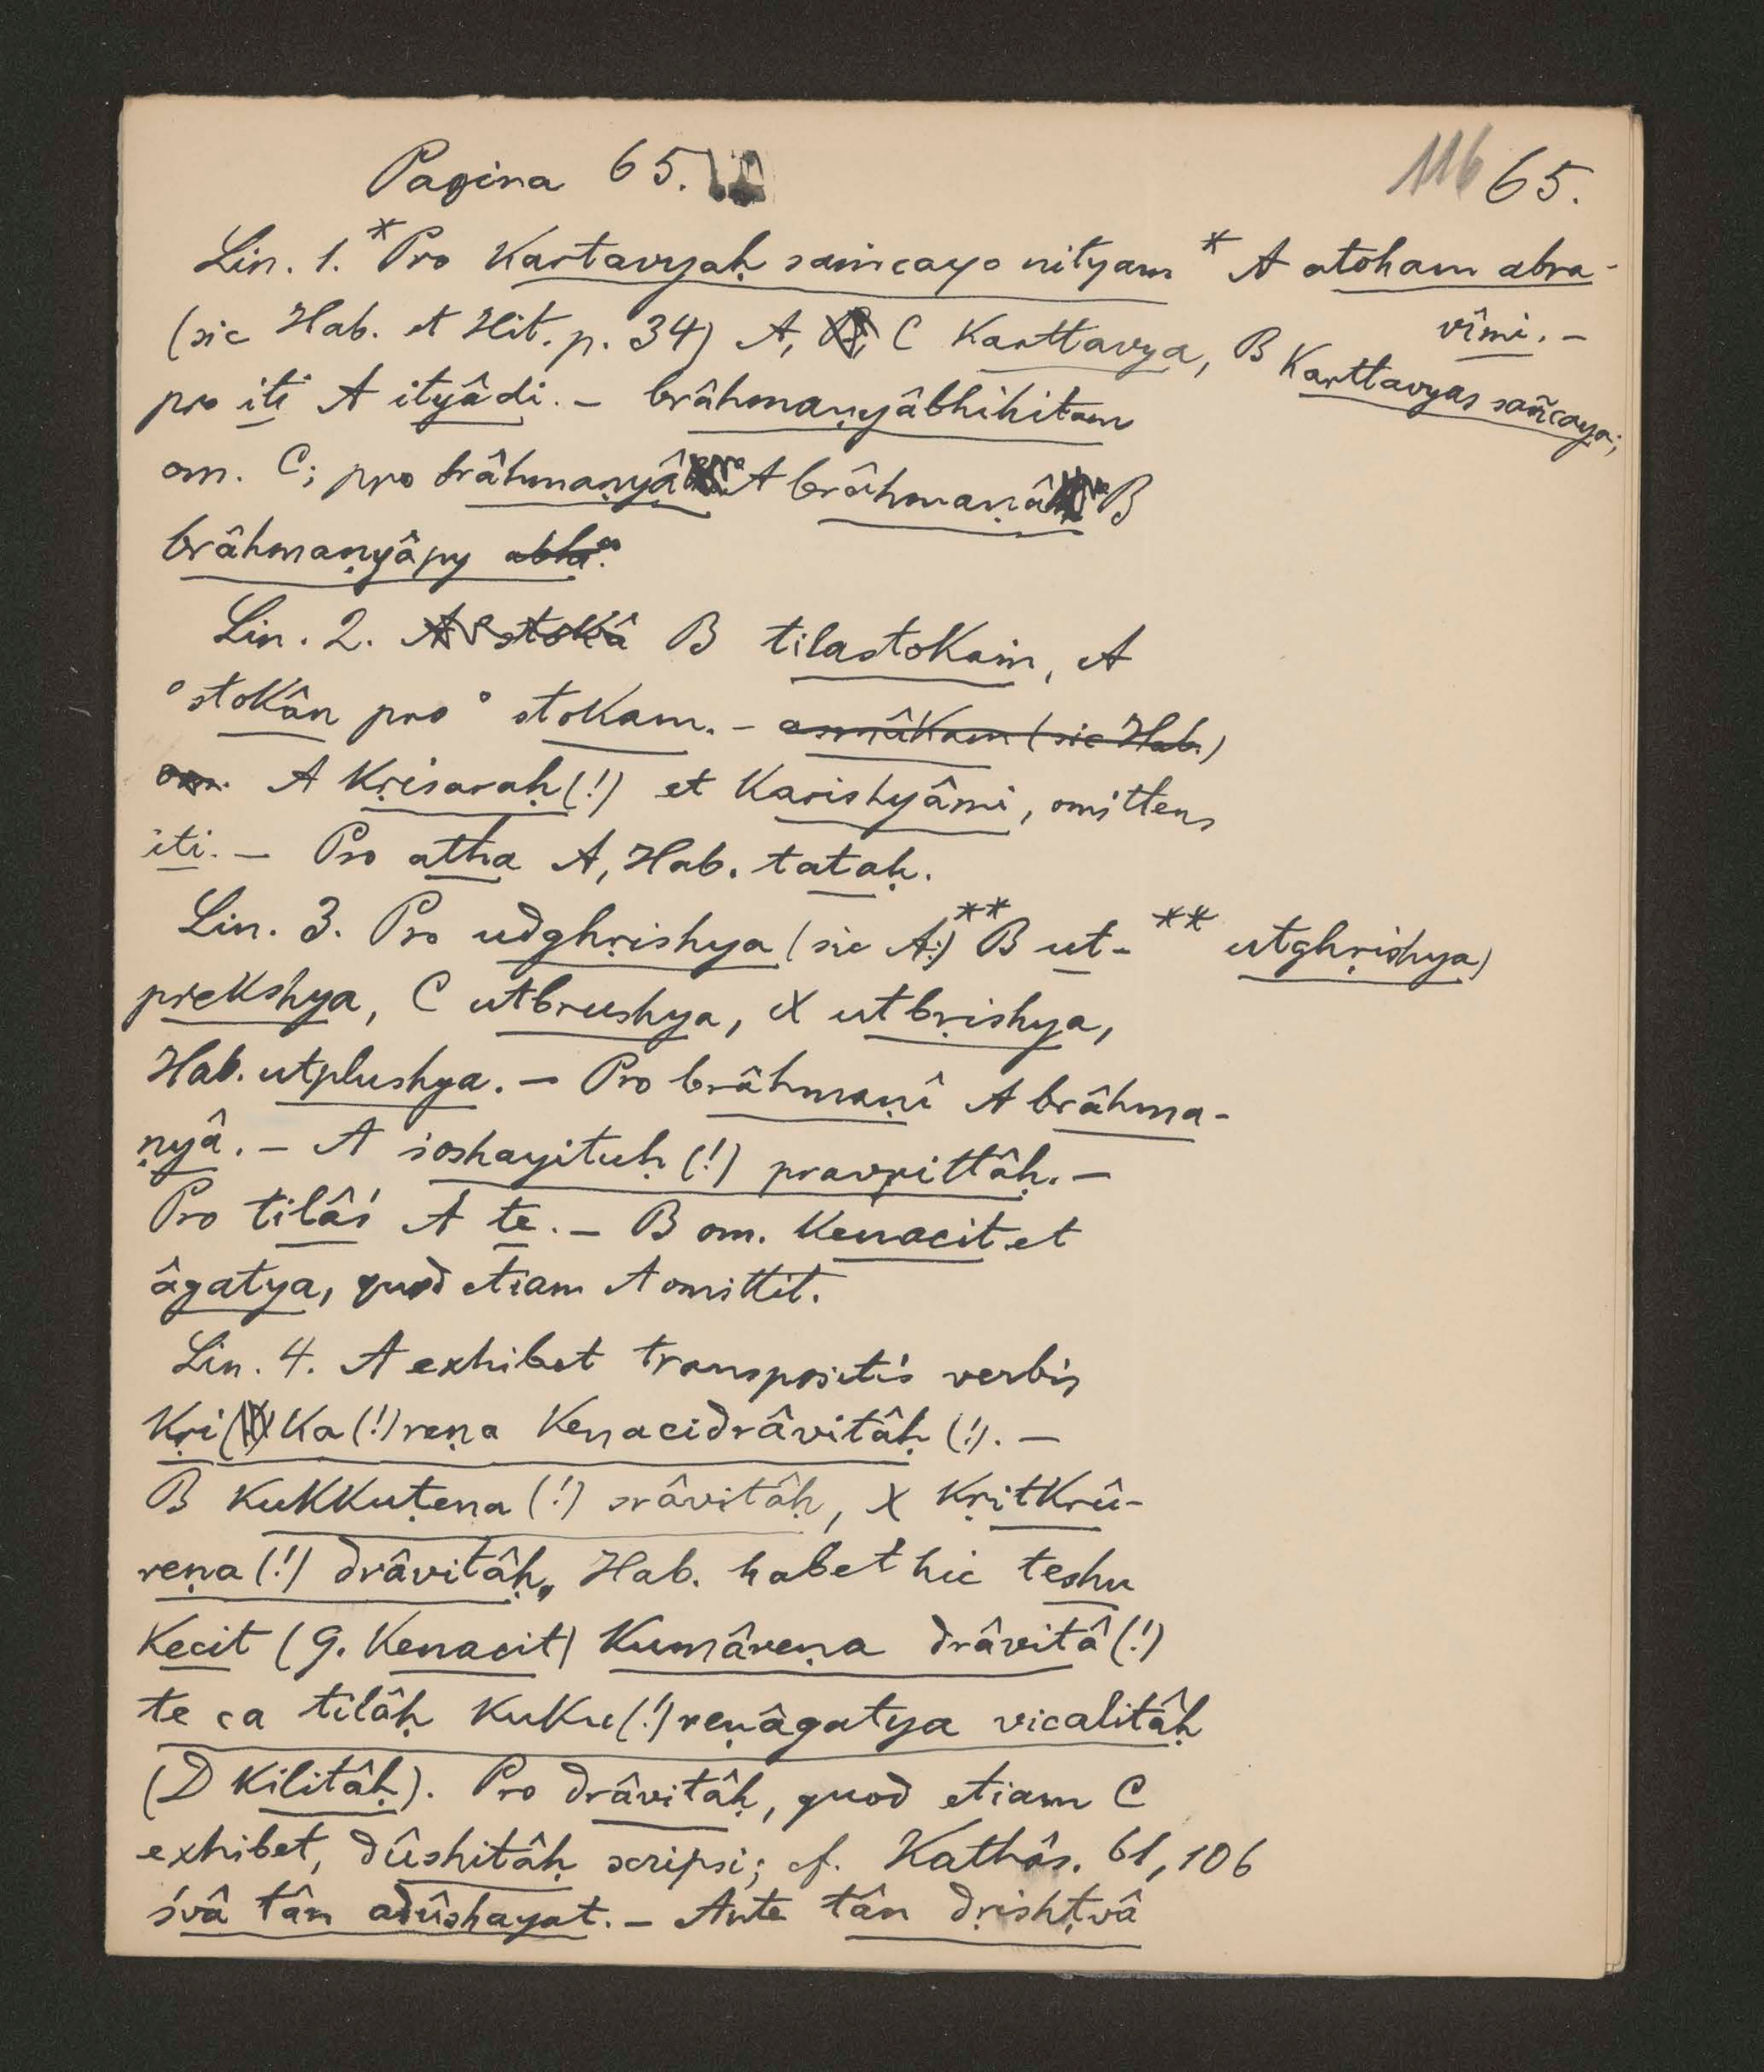 Pagina 65.
116 65.
Lin. 1. * Pro kartavyaḥ saṁcayo nityam * A atoham abra-
vîmi. –
(sic Hab. et Hit. p. 34) A, C karttavya, B karttavyas sañcaya;
pro iti A ityâdi. – brâhmaṇyâbhihitam
om. C; pro brâhmaṇyâ A brâhmaṇâ B
brâhmaṇyâpy abhi°
Lin. 2. A °stokâ B tilastokaṁ, A
°stokân pro °stokam. – asmâkam (sic Hab.)
om. A kṛisaraḥ (!) et karishyâmi, omittens
iti. – Pro atha A, Hab. tataḥ.
Lin. 3. Pro udghṛishya (sic A:) ** B ut- ** utghṛishya)
prekshya, C utbrushya, X utbṛishya,
Hab. utplushya. – Pro brâhmaṇî A brâhma-
ṇyâ. – A soshayituḥ (!) pravṛittâḥ. –
Pro tilâś A te. – B om. kenacit et
âgatya, quod etiam A omittit.
Lin. 4. A exhibet transpositis verbis
kṛi ka (!) reṇa kenacidrâvitâḥ (!). –
B kukkuṭena (!) srâvitâḥ, X kṛitkrû-
reṇa (!) drâvitâḥ. Hab. habet hic teshu
kecit (G. kenacit) kumâreṇa drâvitâ (!)
te ca tilâḥ kuku (!) reṇâgatya vicalitâḥ
(D kilitâḥ). Pro drâvitâḥ, quod etiam C
exhibet, dûshitâḥ scripsi; cf. Kathâs. 61, 106
śvâ tân adûshayat. – Ante tân dṛishṭvâ